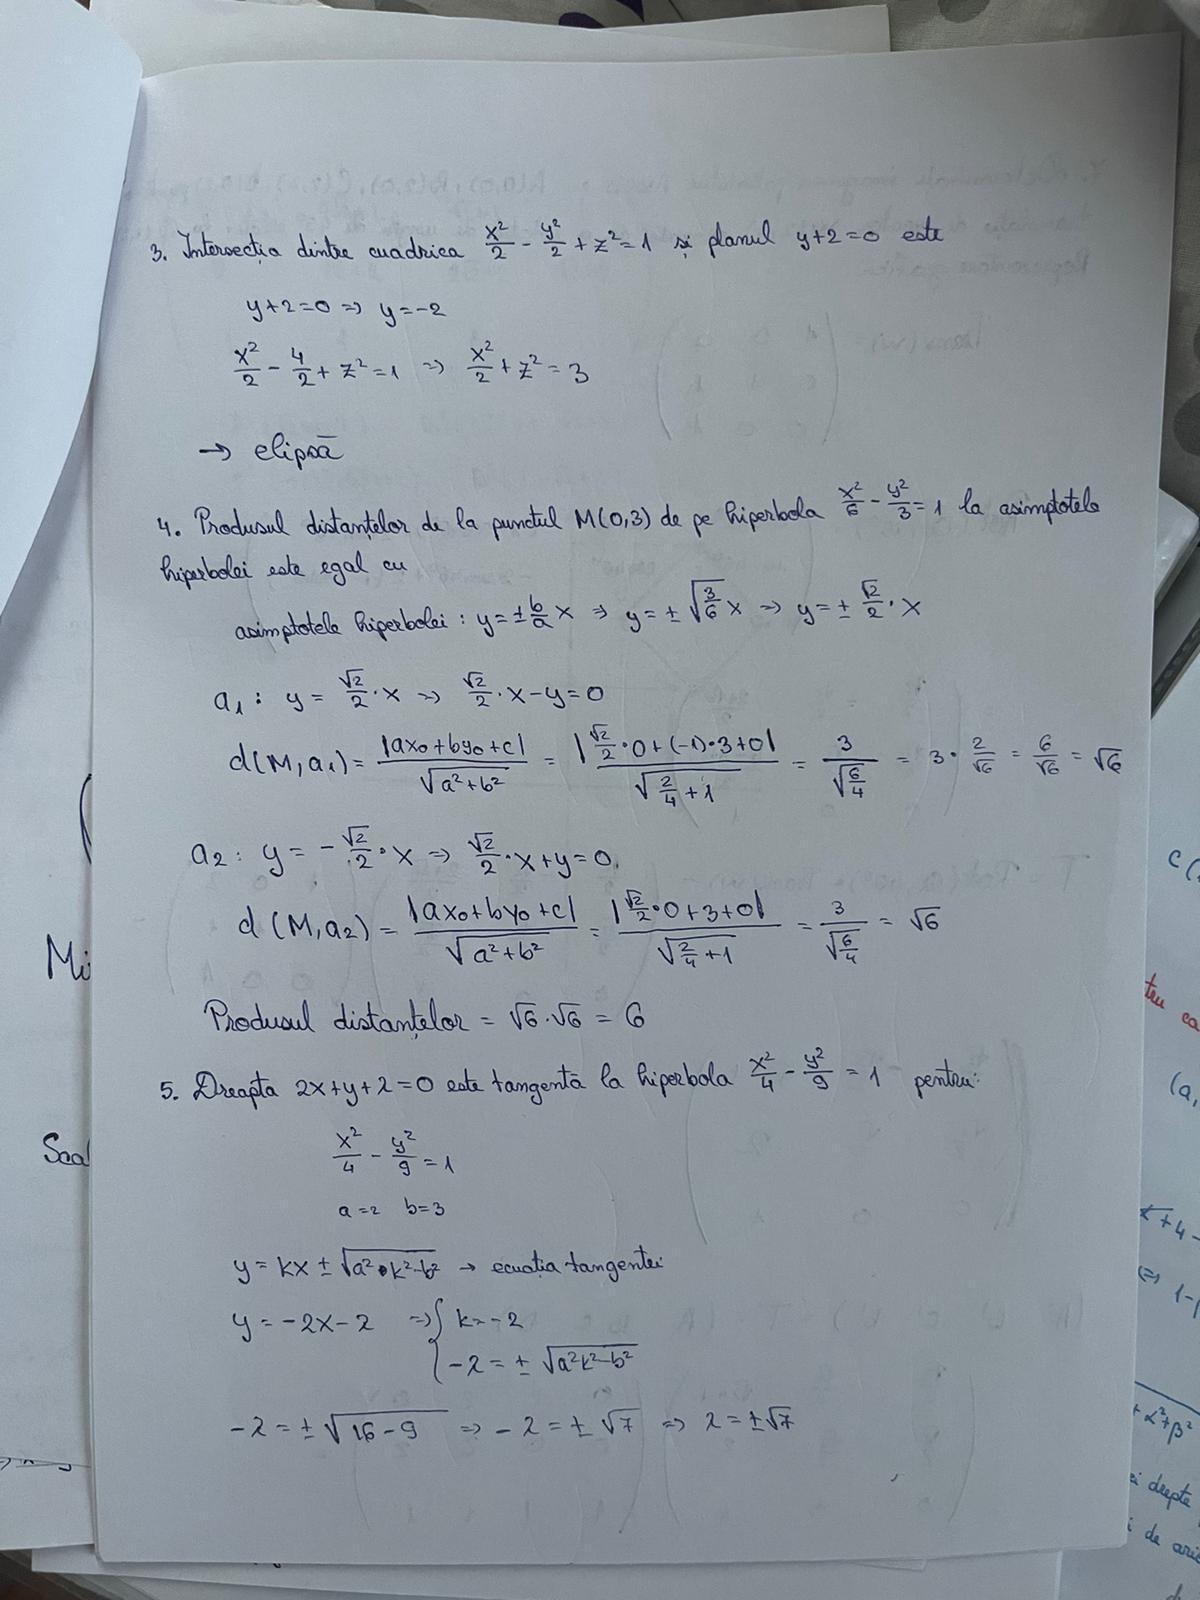 3. Intersecția dintre cuadrica x²/2 - y²/2 + z² = 1 și planul y+2=0 este
y+2=0 => y=-2
x²/2 - 4/2 + z² = 1 => x²/2 + z² = 3
→ elipsă
4. Produsul distanțelor de la punctul M(0,3) de pe hiperbola x²/6 - y²/3 = 1 la asimptotele
hiperbolei este egal cu
asimptotele hiperbolei: y = ± b/a x => y = ± √(3/6) x => y = ± √2/2 · x
a₁: y = √2/2 · x => √2/2 · x - y = 0
d(M, a₁) = |ax₀+by₀+c| / √(a²+b²) = |√2/2 · 0 + (-1)·3+0| / √(2/4 + 1) = 3 / √(6/4) = 3 · 2/√6 = 6/√6 = √6
a₂: y = - √2/2 · x => √2/2 · x + y = 0.
d(M, a₂) = |ax₀+by₀+c| / √(a²+b²) = |√2/2 · 0+3+0| / √(2/4 + 1) = 3 / √(6/4) = √6
Produsul distanțelor = √6 · √6 = 6
5. Dreapta 2x+y+λ=0 este tangentă la hiperbola x²/4 - y²/9 = 1 pentru:
x²/4 - y²/9 = 1
a=2 b=3
y = kx ± √(a²·k²-b²) → ecuația tangentei
y = -2x-λ => { k=-2
-λ = ± √(a²k²-b²)
-λ = ± √(16-9) => -λ = ± √7 => λ = ±√7
Mi
Scal
C(
tru ca
(a,
+4-
=> 1-
+α²+β²
drepte
de arie